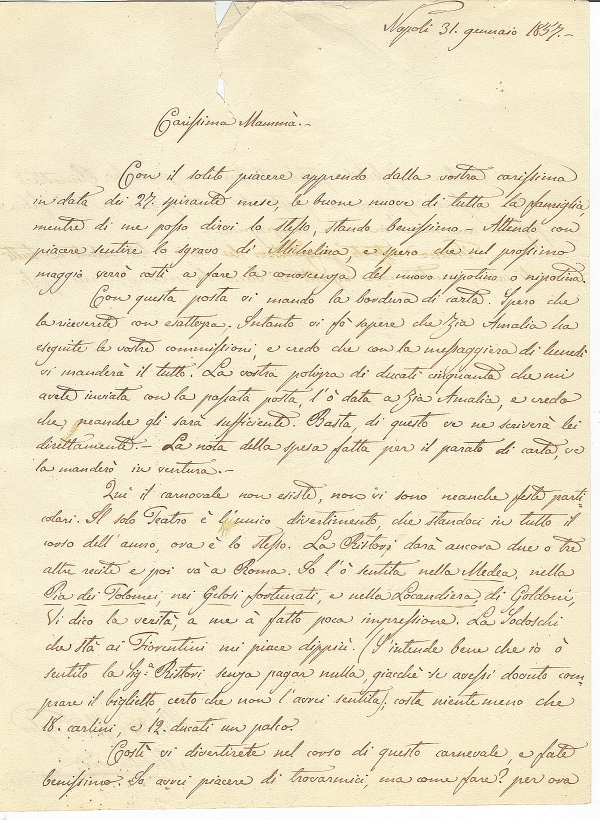 Napoli 31. gennaio 1857.-
Carissima Mammà.-
Con il solito piacere apprendo dalla vostra carissima
in data dei 27. spirante mese, le buone nuove di tutta la famiglia,
mentre di me posso dirvi lo stesso, stando benissimo.- Attendo con
piacere sentire lo sgravo di Michelina, e spero che nel prossimo
maggio verrò costì a fare la conoscenza del nuovo nipotino o nipotina.
Con questa posta vi mando la bordura di carta. Spero che
la riceverete con esattezza. Intanto vi fò sapere che Zia Amalia ha
eseguite le vostre commissioni, e credo che con la messaggiera di lunedì
vi manderà il tutto. La vostra polizza di ducati cinquanta che mi
avete inviata con la passata posta, l'ò data a Zia Amalia, e credo
che neanche gli sarà sufficiente. Basta, di questo ve ne scriverà lei
direttamente.- La nota della spesa fatta per il parato di carta, ve
la manderò in ventura.-
Quì il carnovale non esiste, non vi sono neanche feste parti-
colari. Il solo Teatro è l'unico divertimento, che standoci in tutto il
corso dell'anno, ora è lo stesso. La Ristori darà ancora due o tre
altre recite e poi và a Roma. Io l'ò sentita nella Medea, nella
Pia dei Tolomei, nei Gelosi fortunati, e nella Locandiera di Goldoni,
Vi dico la verità, a me à fatto poca impressione. La Sadoschi
che stà ai Fiorentini mi piace dippiù. (S'intende bene che io ò
sentito la Sig.ª Ristori senza pagar nulla, giacchè se avessi dovuto com-
prare il biglietto, certo che non l'avrei sentita); costa niente meno che
18. carlini, e 12. ducati un palco.
Costì vi divertirete nel corso di questo carnevale, e fate
benissimo. Io avrei piacere di trovarmici, ma come fare? per ora